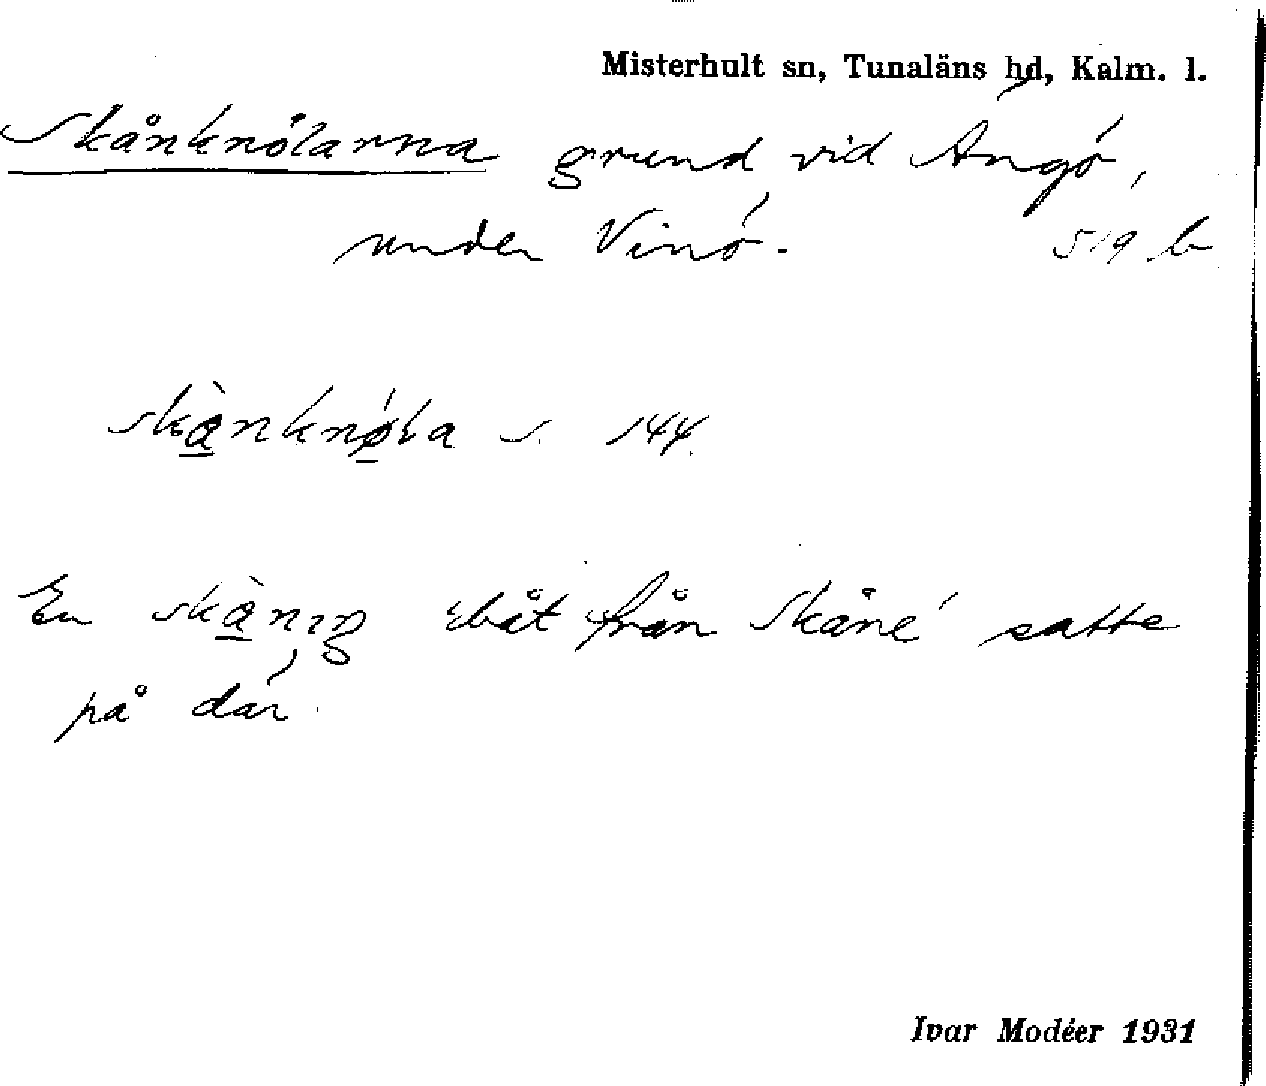 Misterhult sn, Tunaläns hd, Kalm. l.
Skånknölarna grund vid Ängö,
under Vinö. 519 b
skànknøla s. 144.
En skànıŋ 'båt från Skåne' satte
på där.
Ivar Modéer 1931